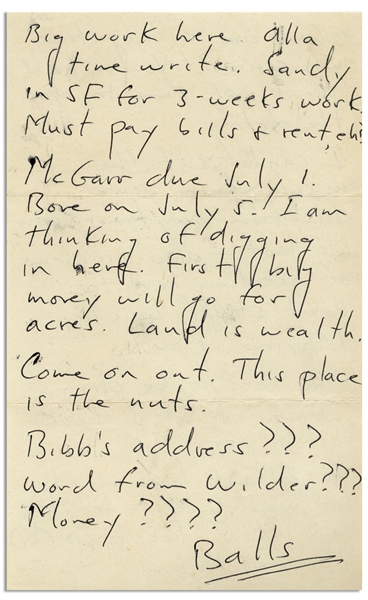 Big work here. alla
time write. Sandy
in SF for 3-weeks work.
Must pay bills & rent, eh?
McGarr due July 1.
Bone on July 5. I am
thinking of digging
in here. First big
money will go for
acres. Land is wealth.
Come on out. This place
is the nuts.
Bibb's address ???
word from Wilder???
Money ????
Balls